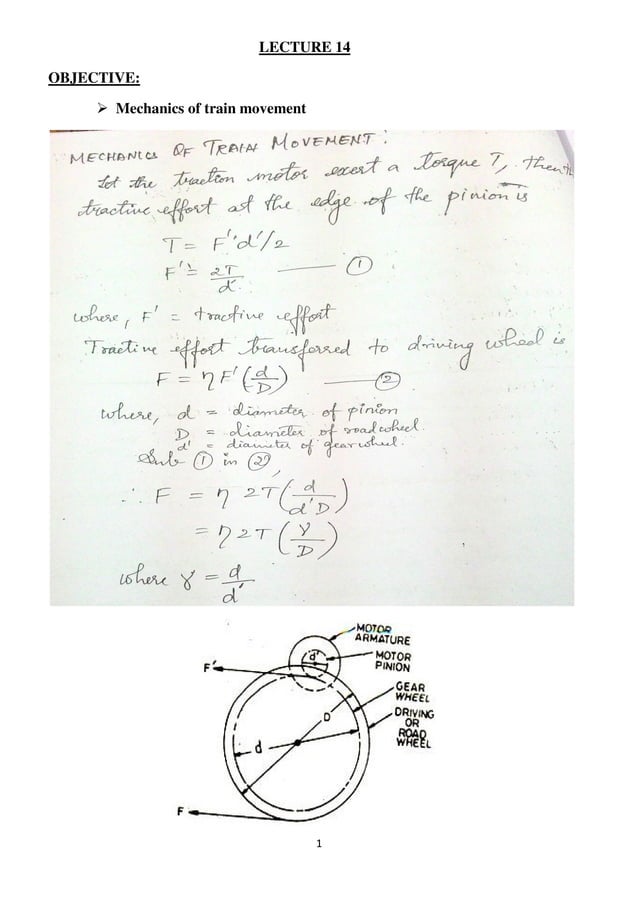 LECTURE 14
OBJECTIVE:
➢ Mechanics of train movement
MECHANICS OF TRAIN MOVEMENT:
Let the traction motor exert a torque T, then the
tractive effort at the edge of the pinion is
T = F'd'/2
F' = 2T/d' —— ①
where, F' = tractive effort
Tractive effort transferred to driving wheel is
F = ηF'(d/D) —— ②
where, d = diameter of pinion
D = diameter of road wheel.
d' = diameter of gear wheel.
Sub ① in ②,
∴ F = η 2T(d/d'D)
= η 2T(γ/D)
where γ = d/d'
MOTOR
ARMATURE
d'
MOTOR
PINION
F'
GEAR
WHEEL
D
DRIVING
OR
ROAD
WHEEL
d
F
1